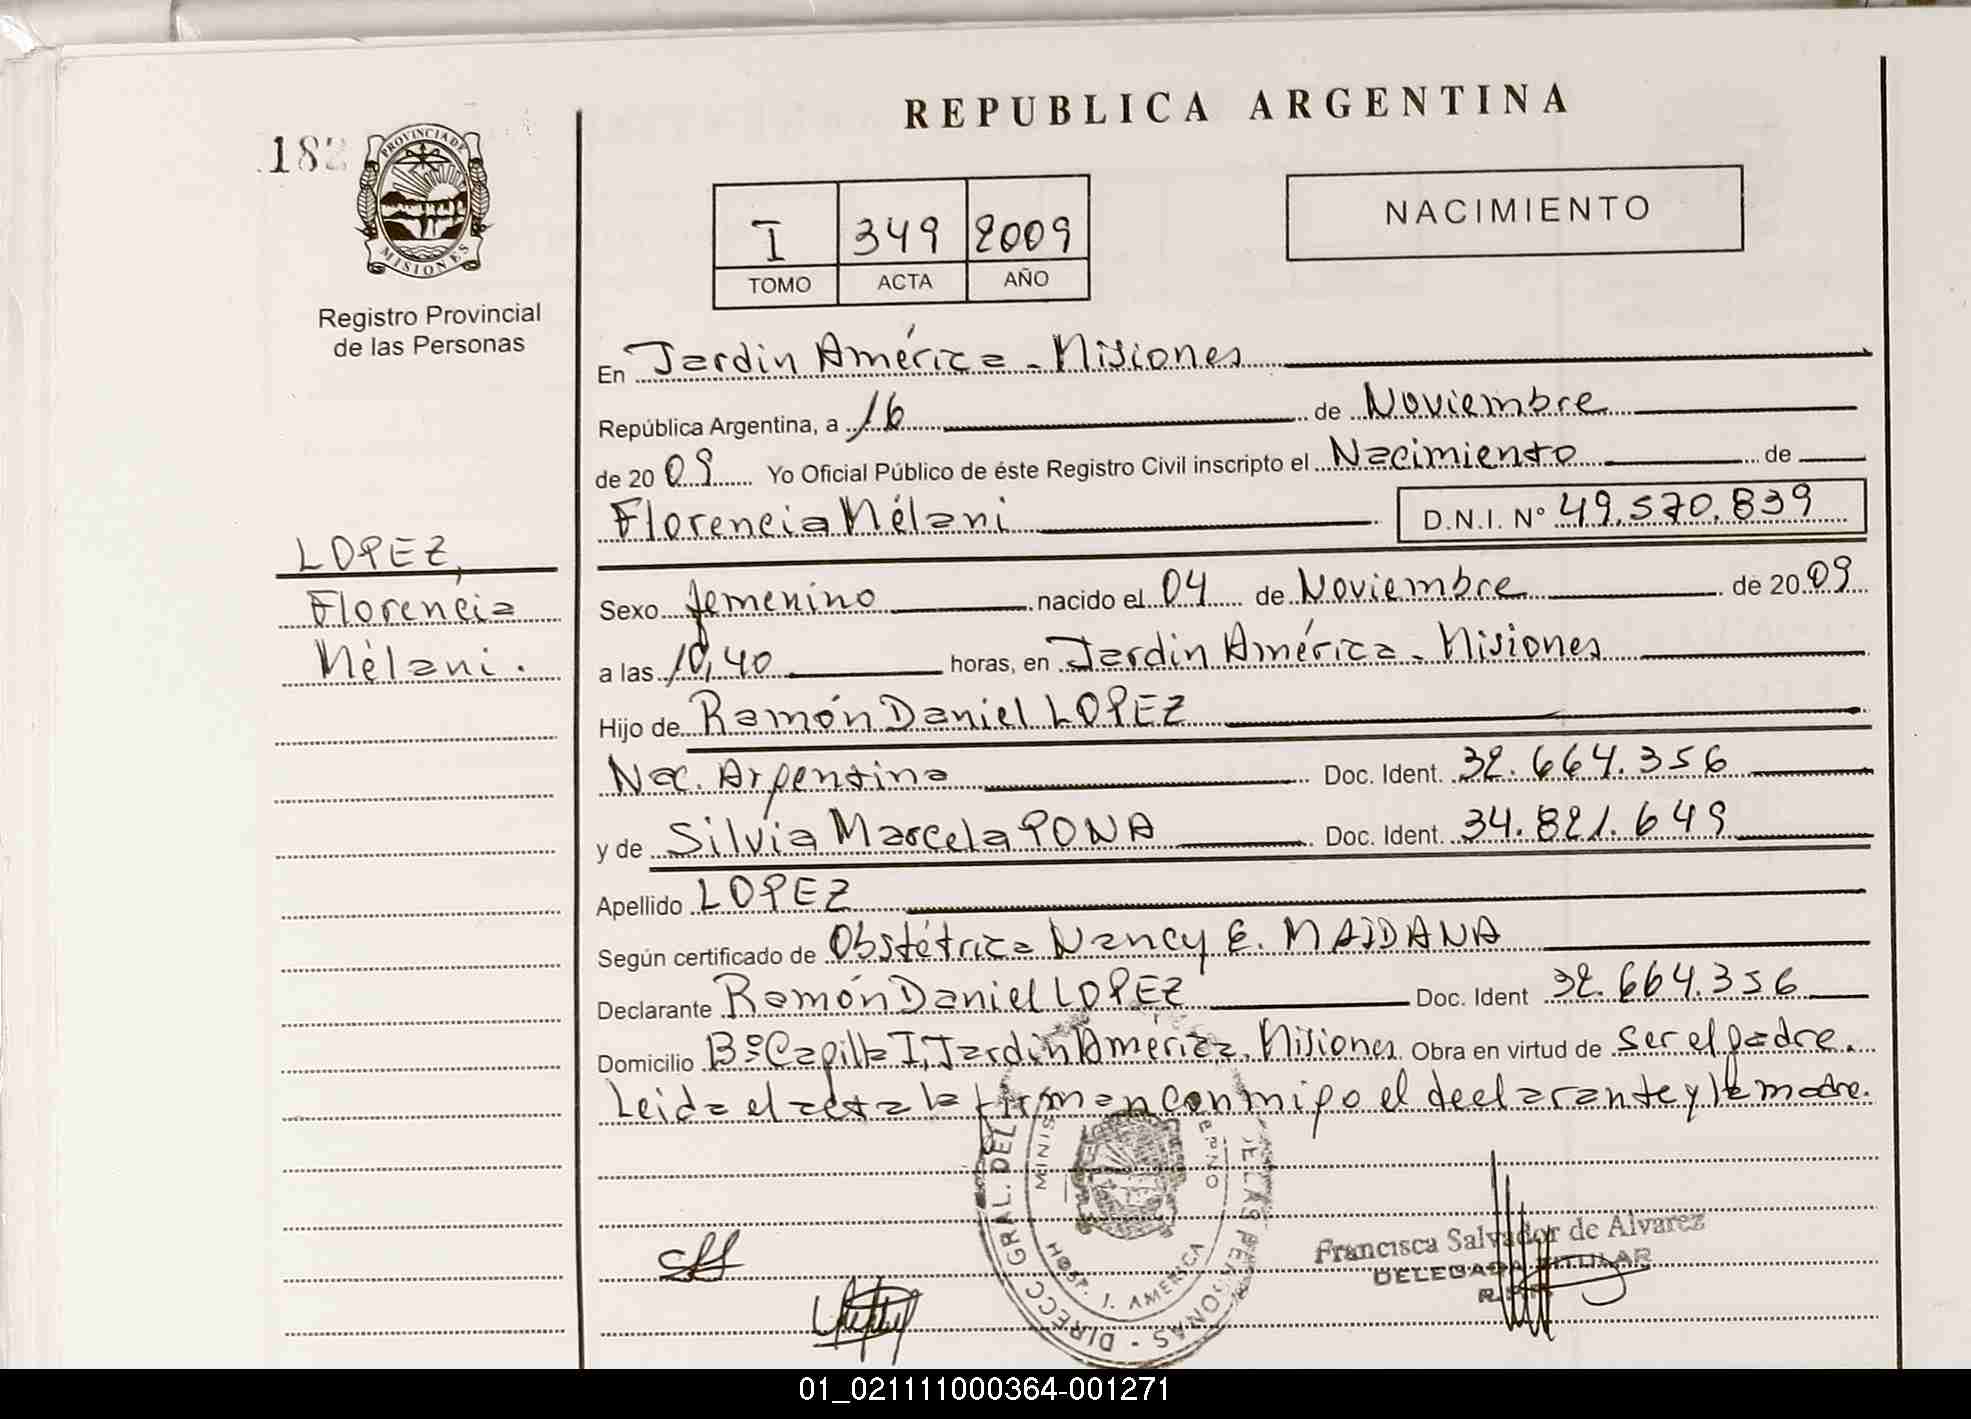 REPUBLICA ARGENTINA
PROVINCIA DE
MISIONES
Registro Provincial
de las Personas
I 349 2009
TOMO ACTA AÑO
NACIMIENTO
En Jardín América - Misiones
República Argentina, a 16 de Noviembre
de 2009 Yo Oficial Público de éste Registro Civil inscripto el Nacimiento de
Florencia Mélani D.N.I. N° 49.570.839
LOPEZ,
Florencia
Mélani.
Sexo femenino nacido el 04 de Noviembre de 2009
a las 10,40 horas, en Jardín América - Misiones
Hijo de Ramón Daniel LOPEZ
Nac. Argentina Doc. Ident. 32.664.356
y de Silvia Marcela PONA Doc. Ident. 34.821.649
Apellido LOPEZ
Según certificado de Obstétrica Nancy E. MAIDANA
Declarante Ramón Daniel LOPEZ Doc. Ident 32.664.356
Domicilio B° Capilla I, Jardín América, Misiones Obra en virtud de ser el padre.
Leida el acta la firman conmigo el declarante y la madre.
DIRECC GRAL. DEL DE LAS PERSONAS
HOSP. J. AMERICA
Francisca Salvador de Alvarez
DELEGADA TITULAR
01_021111000364-001271